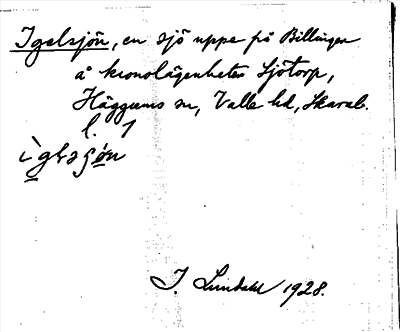 Igelsjön, en sjö uppe på Billingen
å kronolägenheten Sjötorp,
Häggums sn, Valle hd, Skarab.
l. 1
ìgəlsʃön
I. Lundahl 1928.